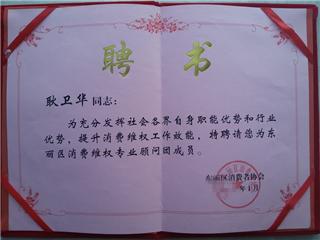 聘书
耿卫华同志：
为充分发挥社会各界自身职能优势和行业
优势，提升消费维权工作效能，特聘请您为东
丽区消费维权专业顾问团成员。
东丽区消费者协会
年1月